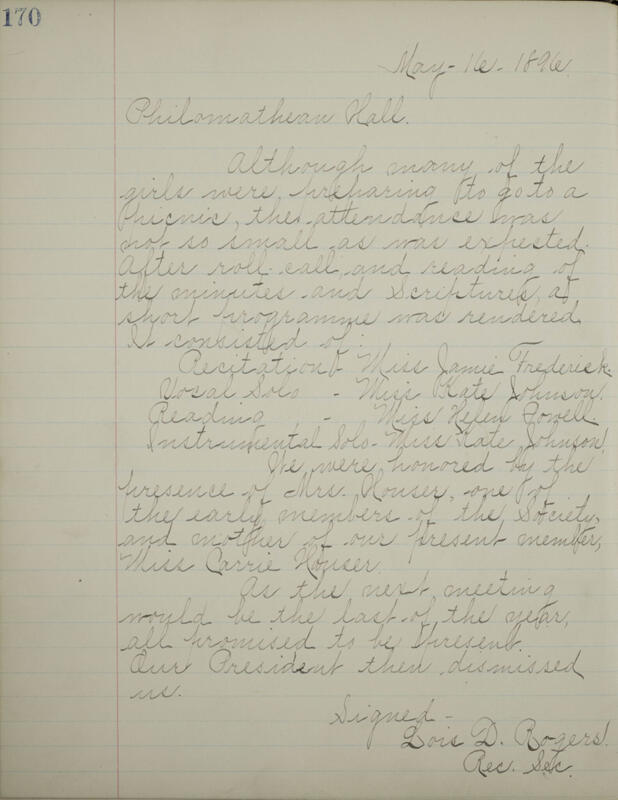 170
May - 16 - 1896.
Philomathean Hall.
Although many of the
girls were preparing to go to a
picnic, the attendance was
not so small as was expected.
After roll-call and reading of
the minutes and Scriptures, a
short programme was rendered.
It consisted of:
Recitation - Miss Jamie Frederick.
Vocal Solo - Miss Kate Johnson.
Reading - Miss Helen Fowell.
Instrumental Solo - Miss Kate Johnson.
We were honored by the
presence of Mrs. Houser, one of
the early members of the Society,
and mother of our present member,
Miss Carrie Houser.
As the next meeting
would be the last of the year,
all promised to be present.
Our President then dismissed
us.
Signed -
Lois D. Rogers.
Rec. Sec.